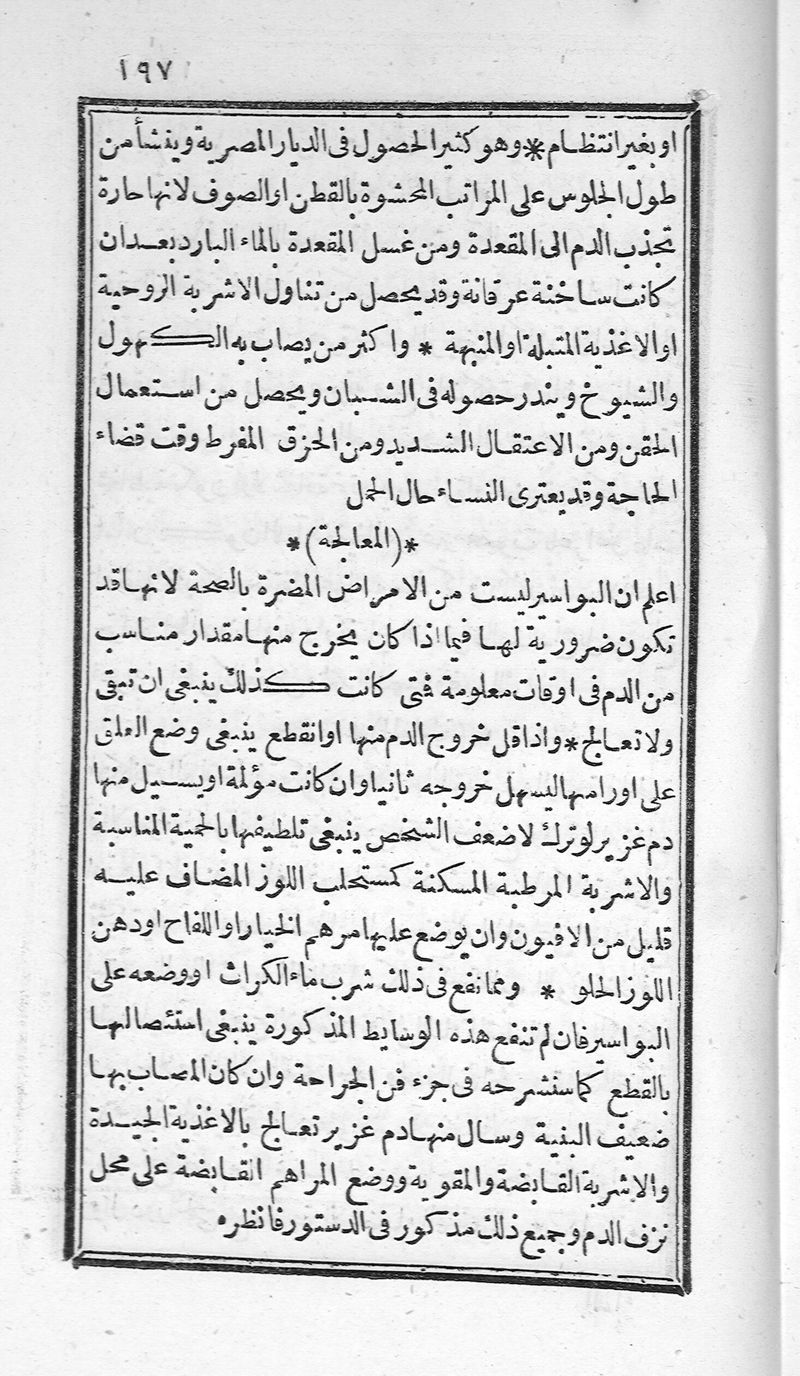 ١٩٧
او بغير انتظام * وهو كثير الحصول فى الديار المصرية وينشأ من
طول الجلوس على المراتب المحشوة بالقطن او الصوف لانها حارة
تجذب الدم الى المقعدة ومن غسل المقعدة بالماء البارد بعد ان
كانت ساخنة عرقانة وقد يحصل من تناول الاشربة الروحية
او الاغذية المتبلة او المنبهة * واكثر من يصاب به الكهول
والشيوخ ويندر حصوله فى الشبان ويحصل من استعمال
الحقن ومن الاعتقال الشديد ومن الحزق المفرط وقت قضاء
الحاجة وقد يعترى النساء حال الحمل
*(المعالجة)*
اعلم ان البواسير ليست من الامراض المضرة بالصحة لانها قد
تكون ضرورية لها فيما اذا كان يخرج منها مقدار مناسب
من الدم فى اوقات معلومة فمتى كانت كذلك ينبغى ان تبقى
ولا تعالج * واذا قل خروج الدم منها او انقطع ينبغى وضع العلق
على اورامها ليسهل خروجه ثانيا وان كانت مؤلمة او يسيل منها
دم غزير لو ترك لاضعف الشخص ينبغى تلطيفها بالحمية المناسبة
والاشربة المرطبة المسكنة كمستحلب اللوز المضاف عليه
قليل من الافيون وان يوضع عليها مرهم الخيار او اللفاح او دهن
اللوز الحلو * ومما نفع فى ذلك شرب ماء الكراث او وضعه على
البواسير فان لم تنفع هذه الوسايط المذكورة ينبغى استئصالها
بالقطع كما سنشرحه فى جزء فن الجراحة وان كان المصاب بها
ضعيف البنية وسال منها دم غزير تعالج بالاغذية الجيدة
والاشربة القابضة والمقوية ووضع المراهم القابضة على محل
نزف الدم وجميع ذلك مذكور فى الدستور فانظره